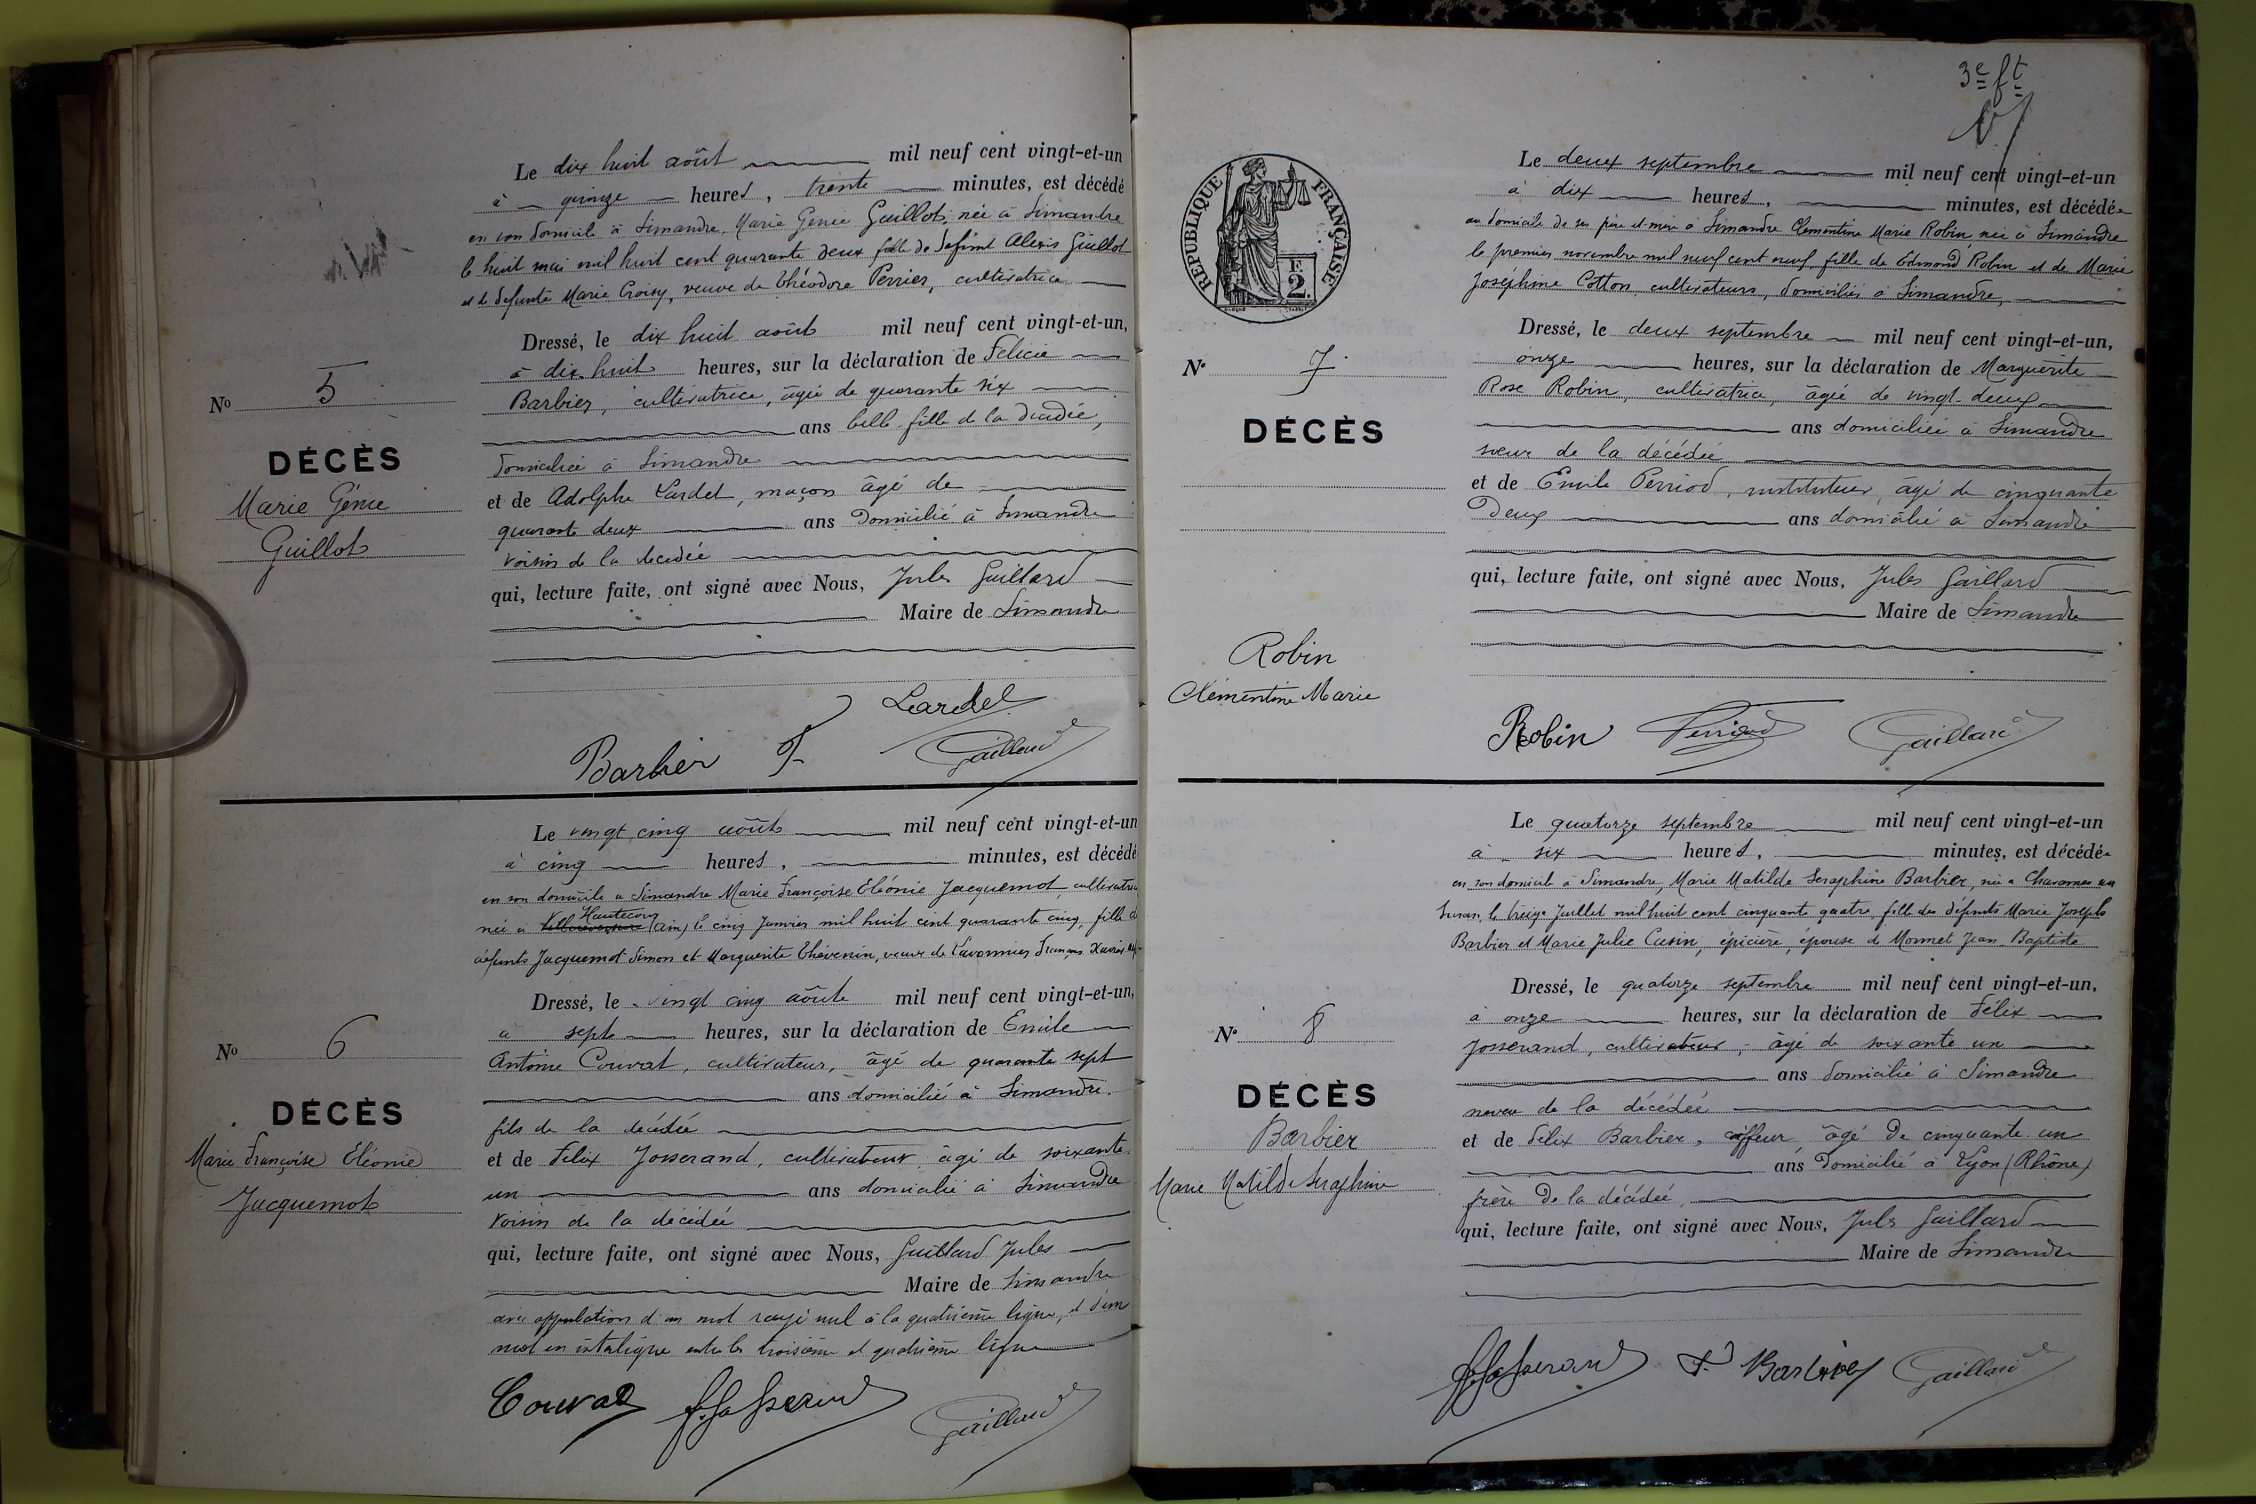 Le dix huit août mil neuf cent vingt-et-un
à quinze heures, trente minutes, est décédé
en son domicile à Simandre, Marie Génie Guillot, née à Simandre
le huit mai mil huit cent quarante deux fille de défunt Alexis Guillot
et de défunte Marie Croisy, veuve de Théodore Perrier, cultivatrice
Dressé, le dix huit août mil neuf cent vingt-et-un,
à dix-huit heures, sur la déclaration de Félicie
Barbier, cultivatrice, âgée de quarante six
ans belle-fille de la décédée,
domiciliée à Simandre
et de Adolphe Lardet, maçon âgé de
quarante deux ans domicilié à Simandre
voisin de la décédée
qui, lecture faite, ont signé avec Nous, Jules Gaillard
Maire de Simandre
No 5
DÉCÈS
Marie Génie
Guillot
Lardet
Barbier F Gaillard
Le vingt cinq août mil neuf cent vingt-et-un
à cinq heures, minutes, est décédé
en son domicile à Simandre Marie Françoise Eléonie Jacquemot, cultivatrice
Hautecour
née à (Ain) le cinq Janvier mil huit cent quarante cinq, fille de
défunts Jacquemot Simon et Marguerite Thévenin, veuve de François Xavier
Dressé, le vingt cinq août mil neuf cent vingt-et-un,
à sept heures, sur la déclaration de Emile
Antoine Couvat, cultivateur, âgé de quarante sept
ans domicilié à Simandre.
fils de la décédée
et de Félix Josserand, cultivateur âgé de soixante
un ans domicilié à Simandre
voisin de la décédée
qui, lecture faite, ont signé avec Nous, Gaillard Jules
Maire de Simandre
avec approbation d'un mot rayé nul à la quatrième ligne, et d'un
mot en interligne entre la troisième et quatrième ligne
No 6
DÉCÈS
Marie Françoise Eléonie
Jacquemot
Couvat F. Josserand Gaillard
3e ft
RÉPUBLIQUE FRANÇAISE
2
Le deux septembre mil neuf cent vingt-et-un
à dix heures, minutes, est décédée
au domicile de ses père et mère à Simandre Clémentine Marie Robin née à Simandre
le premier novembre mil neuf cent neuf, fille de Edmond Robin et de Marie
Joséphine Cotton, cultivateurs, domiciliés à Simandre,
Dressé, le deux septembre mil neuf cent vingt-et-un,
onze heures, sur la déclaration de Marguerite
Rose Robin, cultivatrice, âgée de vingt-deux
ans domiciliée à Simandre
sœur de la décédée
et de Emile Perriod, instituteur, âgé de cinquante
deux ans domicilié à Simandre
qui, lecture faite, ont signé avec Nous, Jules Gaillard
Maire de Simandre
No 7
DÉCÈS
Robin
Clémentine Marie
Robin Perriod Gaillard
Le quatorze septembre mil neuf cent vingt-et-un
à six heures, minutes, est décédée
en son domicile à Simandre, Marie Matilde Seraphine Barbier, née à Chavannes sur
Suran, le treize Juillet mil huit cent cinquante quatre, fille des défunts Marie Joseph
Barbier et Marie Julie Cusin, épicière, épouse de Monnet Jean Baptiste
Dressé, le quatorze septembre mil neuf cent vingt-et-un,
à onze heures, sur la déclaration de Félix
Josserand, cultivateur, âgé de soixante un
ans domicilié à Simandre
neveu de la décédée
et de Félix Barbier, coiffeur âgé de cinquante un
ans domicilié à Lyon (Rhône)
frère de la décédée,
qui, lecture faite, ont signé avec Nous, Jules Gaillard
Maire de Simandre
No 8
DÉCÈS
Barbier
Marie Matilde Seraphine
F. Josserand F. Barbier Gaillard